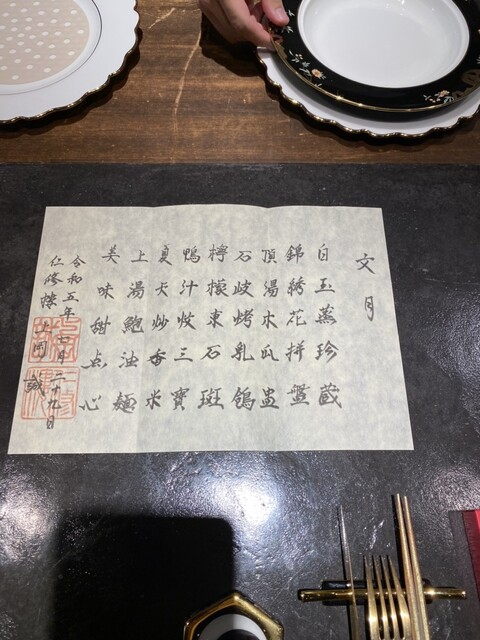 文月
白玉蒸珍蔵
錦綉花拼盤
頂湯木瓜盅
石岐烤乳鴿
檸檬東石斑
鴨汁炆三寶
夏天炒香米
上湯鮑油麺
美味甜点心
令和五年七月二十九日
仁修樓 上岡 誠